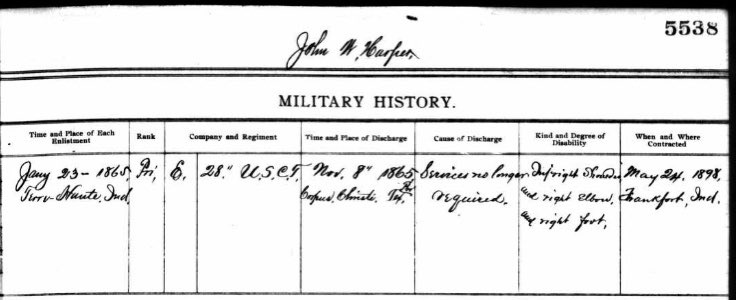 5538
John W. Harper
MILITARY HISTORY.
Time and Place of Each Enlistment
Rank
Company and Regiment
Time and Place of Discharge
Cause of Discharge
Kind and Degree of Disability
When and Where Contracted
Jany 23 - 1865,
Terre-Haute, Ind
Pri,
E, 28" U.S.C.T,
Nov. 8" 1865
Corpus, Christi, Tex,
Services no longer
required.
right
and right Elbow,
and right foot,
May 24, 1898,
Frankfort, Ind.